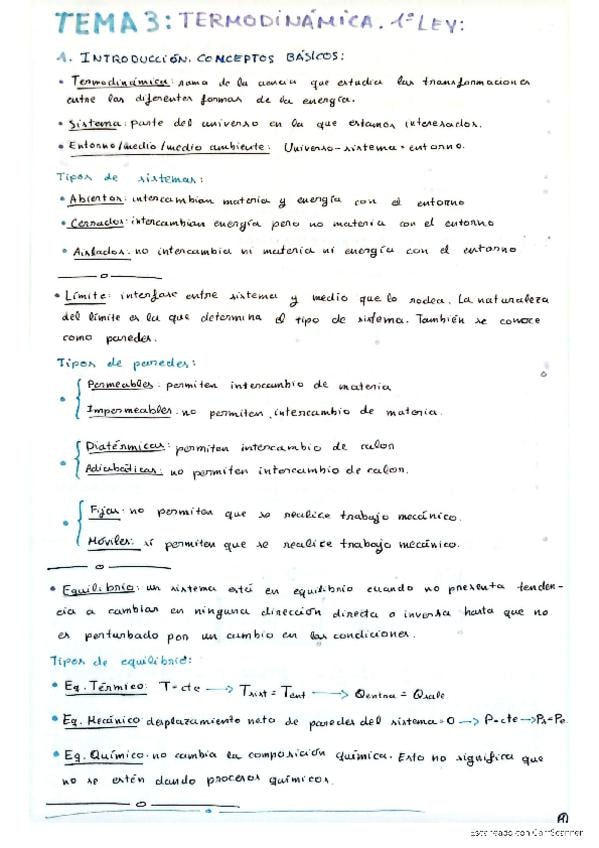 TEMA 3: TERMODINÁMICA. 1ª LEY:
1. INTRODUCCIÓN. CONCEPTOS BÁSICOS:
• Termodinámica: rama de la ciencia que estudia las transformaciones
entre las diferentes formas de la energía.
• Sistema: parte del universo en la que estamos interesados.
• Entorno/medio/medio ambiente: Universo - sistema = entorno.
Tipos de sistemas:
• Abiertos: intercambian materia y energía con el entorno
• Cerrados: intercambian energía pero no materia con el entorno
• Aislados: no intercambia ni materia ni energía con el entorno
• Límite: interfase entre sistema y medio que lo rodea. La naturaleza
del límite es la que determina el tipo de sistema. También se conoce
como paredes.
Tipos de paredes:
• Permeables: permiten intercambio de materia
Impermeables: no permiten intercambio de materia.
• Diatérmicas: permiten intercambio de calor
Adiabáticas: no permiten intercambio de calor.
• Fijas: no permiten que se realice trabajo mecánico.
Móviles: sí permiten que se realice trabajo mecánico.
• Equilibrio: un sistema está en equilibrio cuando no presenta tenden-
cia a cambiar en ninguna dirección directa o inversa hasta que no
es perturbado por un cambio en las condiciones.
Tipos de equilibrio:
• Eq. Térmico: T=cte → Tsist = Tent → Qentra = Qsale
• Eq. Mecánico: desplazamiento neto de paredes del sistema=0 → P=cte → Ps=Pe
• Eq. Químico: no cambia la composición química. Esto no significa que
no se estén dando procesos químicos.
Escaneado con CamScanner